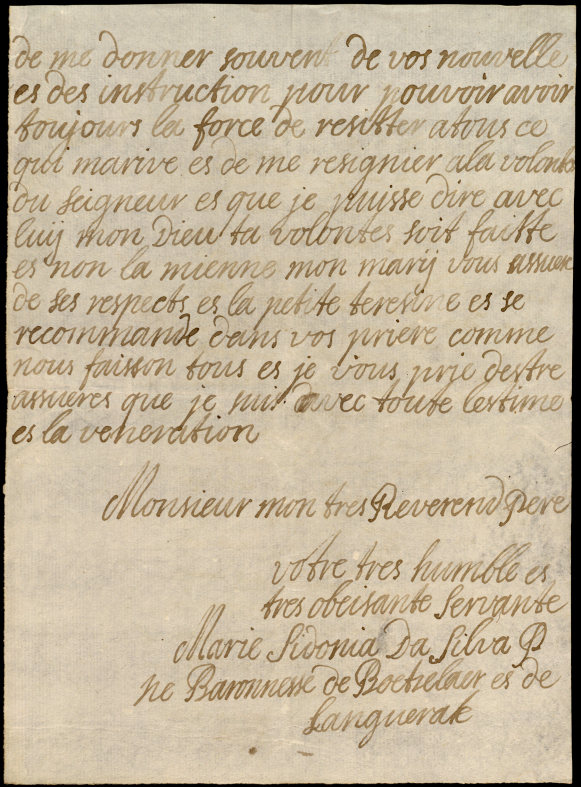 de me donner souvent de vos nouvelle
es des instruction pour pouvoir avoir
toujours la force de resitter atous ce
qui marive es de me resignier ala volonte
du seigneur es que je puisse dire avec
luij mon Dieu ta volontes soit faitte
es non la mienne mon marij vous assuere
de ses respects es la petite teresine es se
recommande dans vos priere comme
nous faisson tous es je vous prie destre
assueres que je suis avec toute lestime
es la veneration
Monsieur mon tres Reverend Pere
votre tres humble es
tres obeisante servante
Marie Sidonia Da Silva P
ne Baronnesse de Boetzelaer es de
Languerak